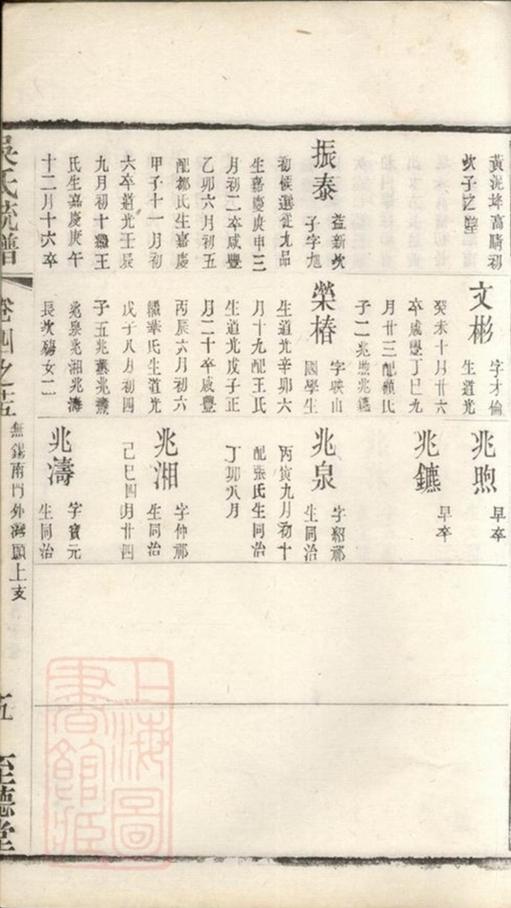 黃泥埄高晴初
次子之墍
振泰
益新次
子字旭
初候選從九品
生嘉慶庚申三
月初二卒咸豐
乙卯六月初五
配鄒氏生嘉慶
甲子十一月初
六卒道光壬辰
九月初十繼王
氏生嘉慶庚午
十二月十六卒
文彬
字才倫
生道光
癸未十月廿六
卒咸豐丁巳九
月廿三配顧氏
子二兆煦兆鑣
榮椿
字映山
國學生
生道光辛卯六
月十九配王氏
生道光戊子正
月二十卒咸豐
丙辰六月初六
繼華氏生道光
戊子八月初四
子五兆
兆泉兆湘兆濤
長次殤女二
兆煦
早卒
兆鑣
早卒
兆泉
字紹祁
生同治
丙寅九月初十
配張氏生同治
丁卯八月
兆湘
字仲祁
生同治
己巳四月廿四
兆濤
字寶元
生同治
吳氏統譜
卷四之五
無錫南門外海顧上支
五
至德堂
上海圖書館藏